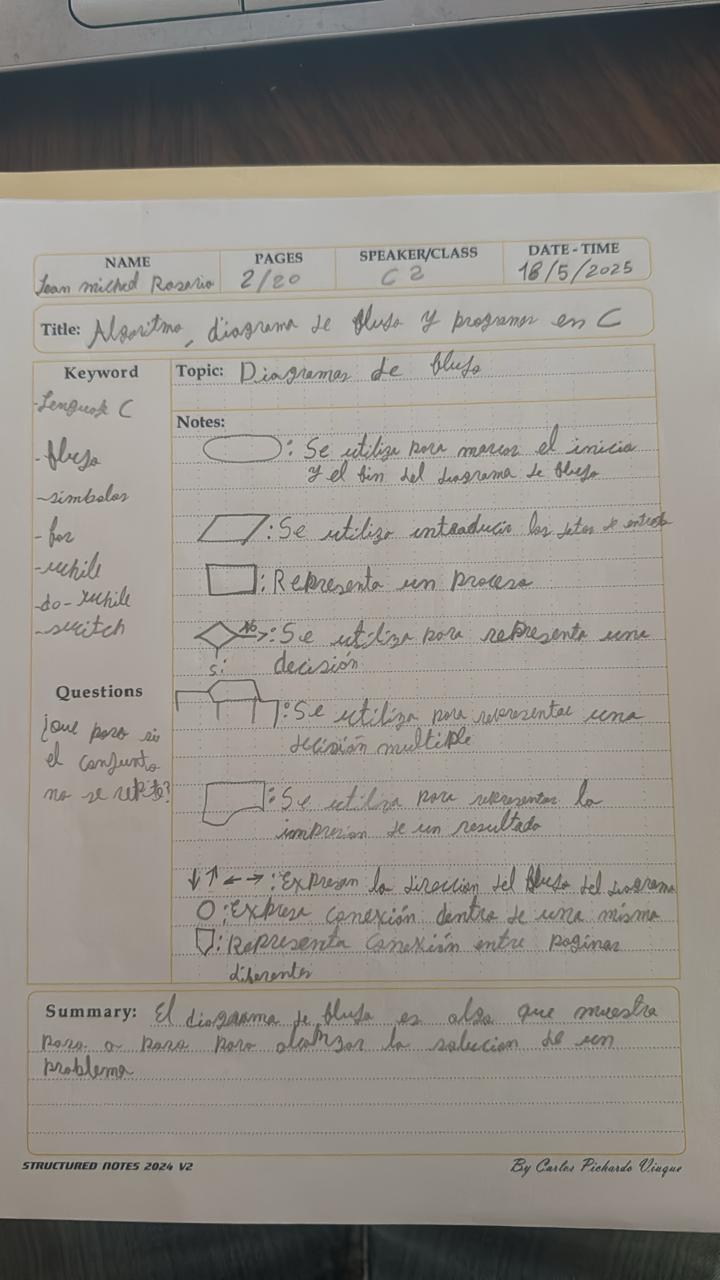 NAME
PAGES
SPEAKER/CLASS
DATE - TIME
Jean michel Rosario
2/20
C 2
18/5/2025
Title: Algoritmo, diagrama de flujo y programas en C
Keyword
-Lenguaje C
-flujo
-simbolos
-for
-while
-do-while
-switch
Questions
¿que pasa si
el conjunto
no se repite?
Topic: Diagramas de flujo
Notes:
: Se utiliza para marcar el inicio
y el fin del diagrama de flujo
: Se utiliza introducir los datos de entrada
: Representa un proceso
No : Se utiliza para representa una
si decisión
: Se utiliza para representar una
decisión multiple
: Se utiliza para representar la
impresion de un resultado
↓↑←→: Expresan la direccion del flujo del diagrama
: Expresa conexión dentro de una misma
: Representa conexión entre paginas
diferentes
Summary: El diagrama de flujo es algo que muestra
paso a paso para alcanzar la solucion de un
problema
STRUCTURED NOTES 2024 V2
By Carlos Pichardo Viuque